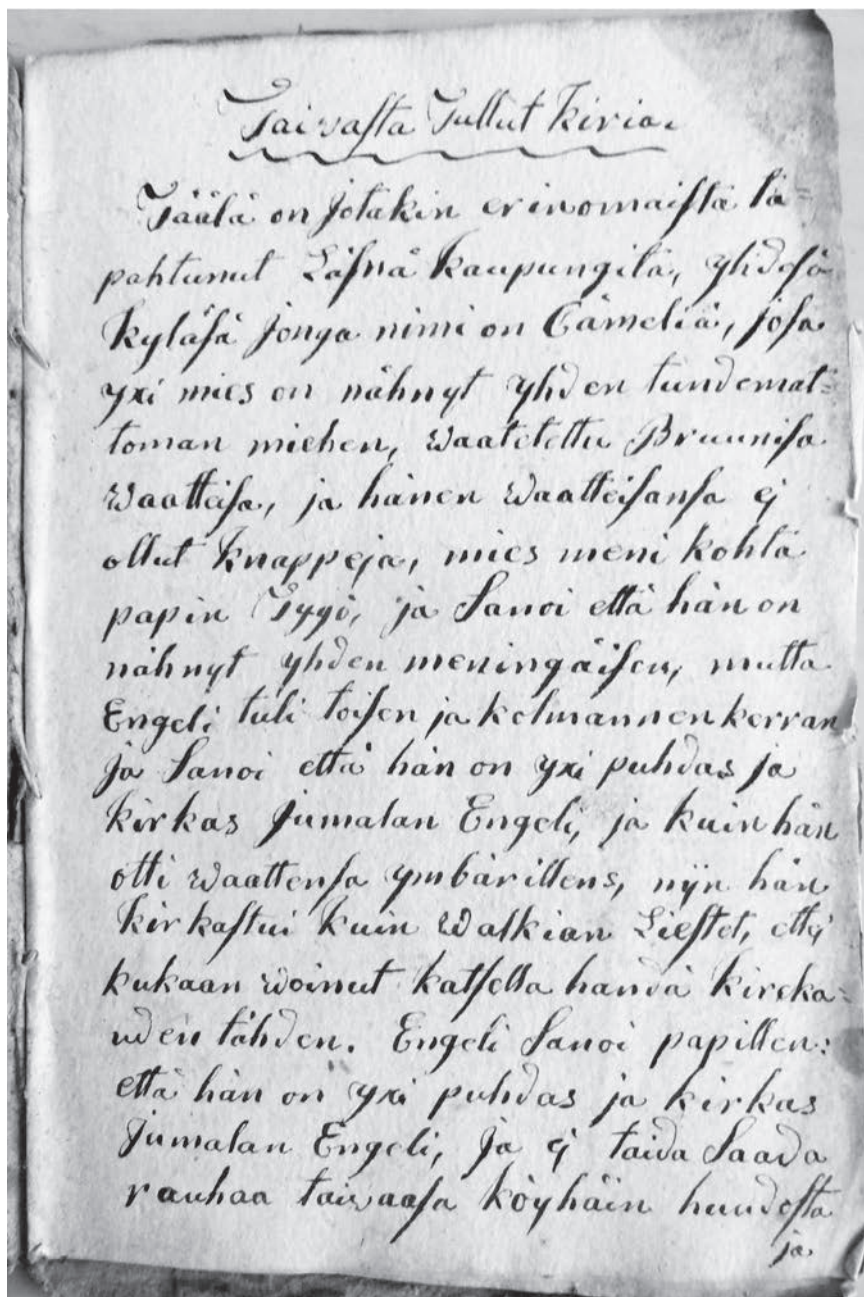 Taivasta Tullut kiria.
Täälä on jotakin erinomaista ta=
pahtunut Läsnä kaupungilä, yhdesä
kyläsä jonga nimi on Cämeliä, josa
yxi mies on nähnyt yhden tundemat=
toman miehen, waatetettu Bruunisa
waatteisa, ja hänen waatteisansa ej
ollut knappeja, mies meni kohta
papin Tygö, ja Sanoi että hän on
nähnyt yhden meningäisen, mutta
Engeli tuli toisen ja kolmannen kerran
ja Sanoi että hän on yxi puhdas ja
kirkas Jumalan Engeli, ja kuin hän
otti waattensa ymbärillens, nijn hän
kirkastui kuin walkian Liestet, ettej
kukaan woinut katsella händä kircka=
uden tähden. Engeli Sanoi papillen:
että hän on yxi puhdas ja kirkas
Jumalan Engeli, ja ej taida Saada
rauhaa taiwaasa köyhäin huudosta
ja